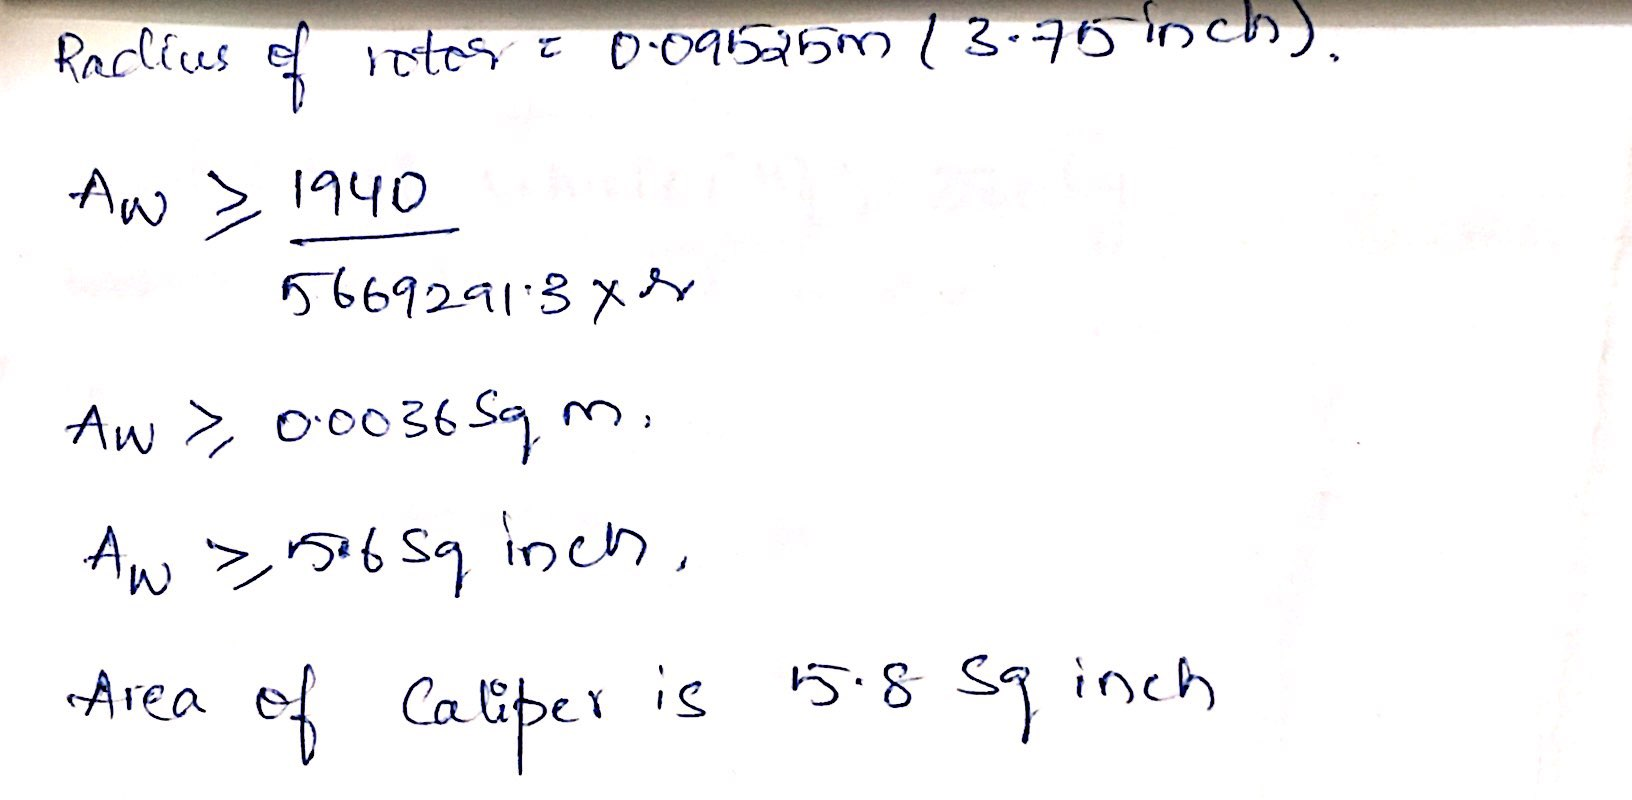 Radius of rotor = 0.09525m (3.75 inch).
Aw ≥ 1940
5669291.3 x r
Aw ≥ 0.0036 Sq m.
Aw ≥ 5.6 Sq inch.
Area of Caliper is 5.8 Sq inch